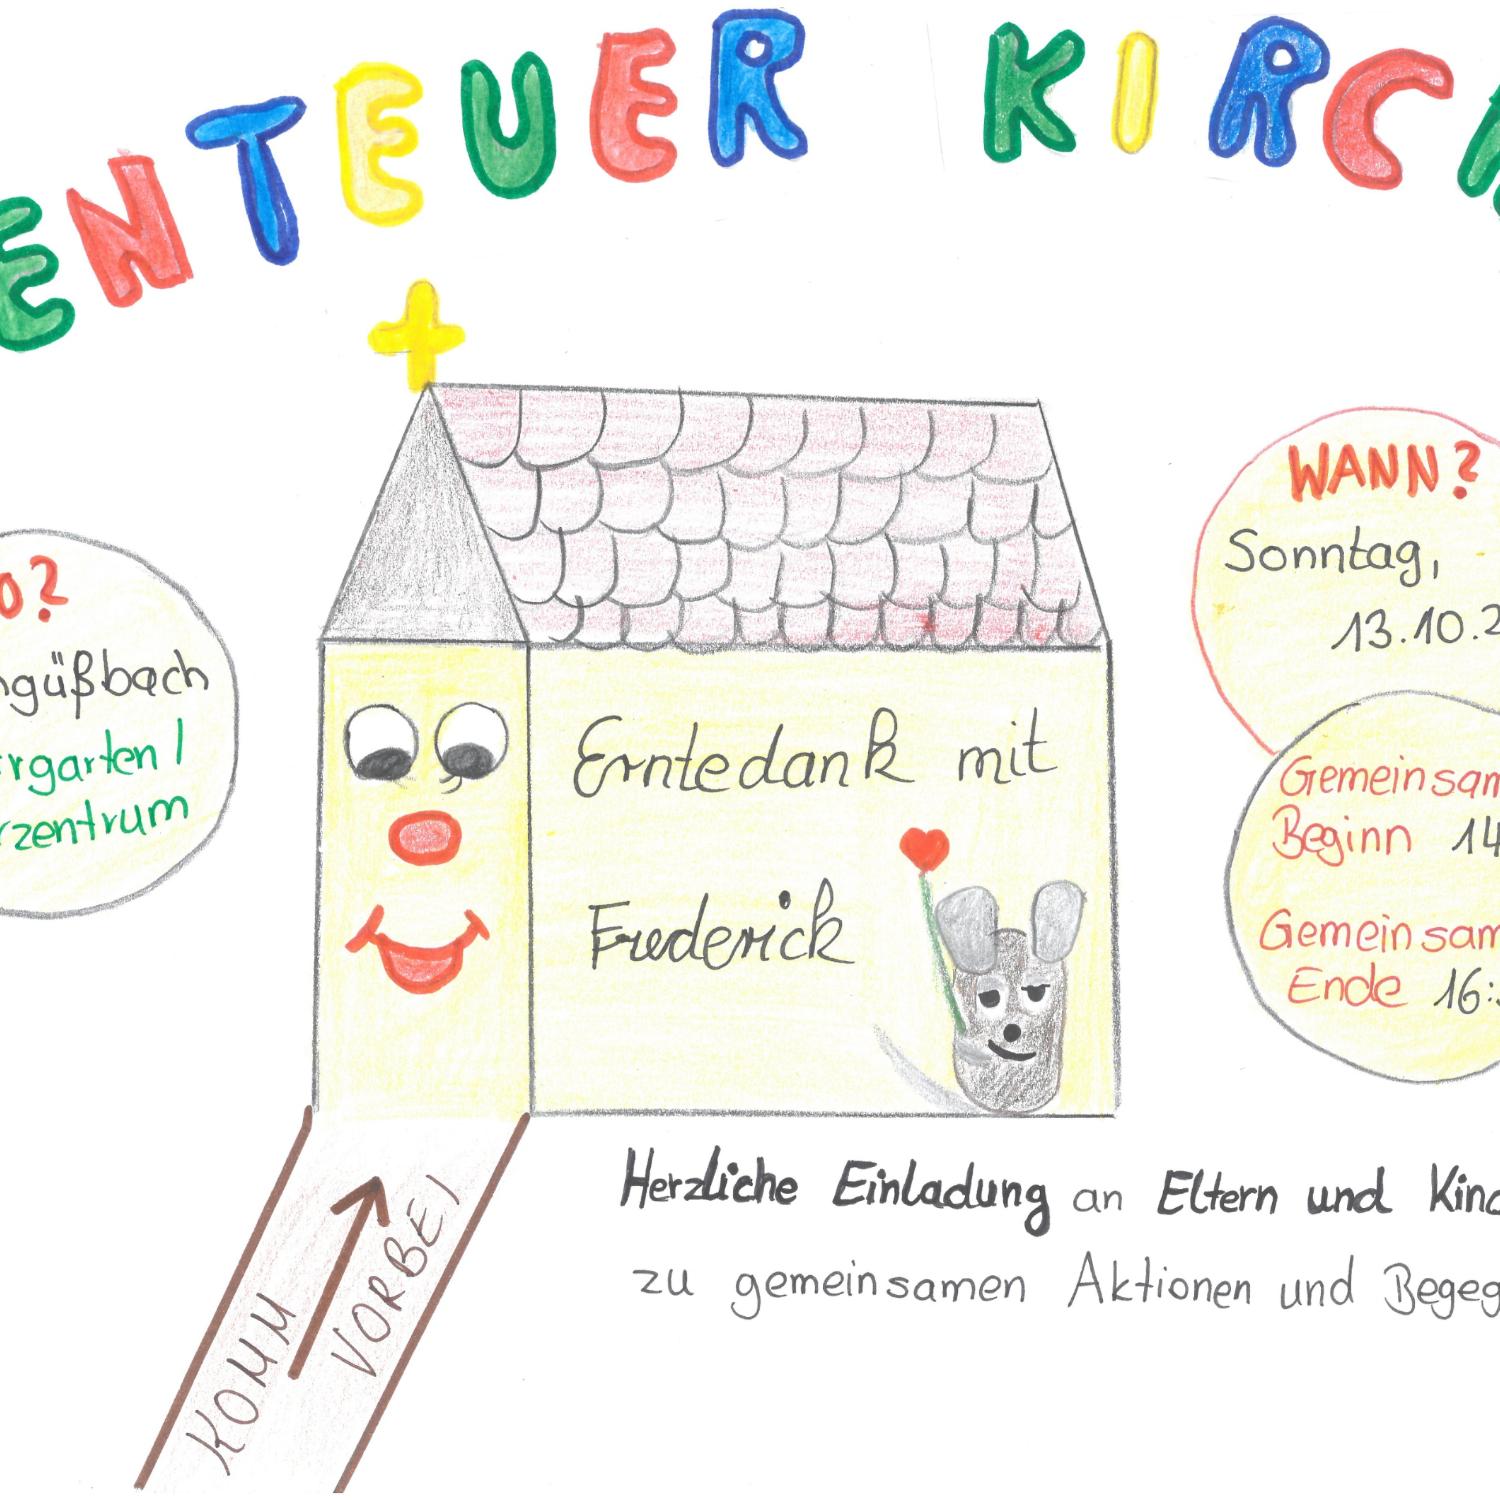 ENTEUER KIRCH
WANN?
Sonntag,
13.10.2
O?
ngüßbach
rrgarten /
rzentrum
Gemeinsam
Beginn 14
Gemeinsam
Ende 16:
Erntedank mit
Frederick
Herzliche Einladung an Eltern und Kind
zu gemeinsamen Aktionen und Begeg
KOMM
VORBEI